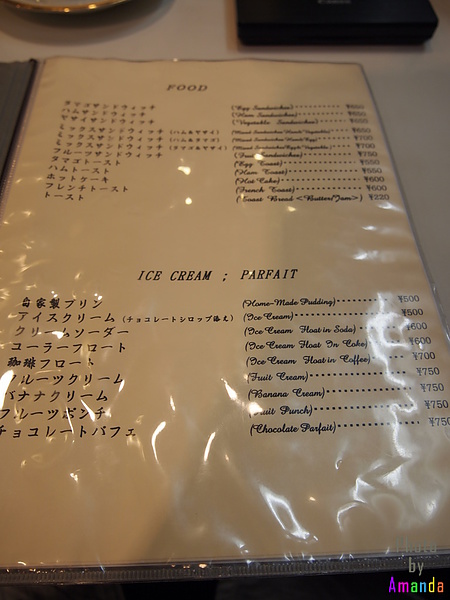 FOOD
タマゴサンドウィッチ (Egg Sandwiches) ¥650
ハムサンドウィッチ (Ham Sandwiches) ¥650
ヤサイサンドウィッチ (Vegetable Sandwiches)
ミックスサンドウィッチ (ハム&ヤサイ) (Mixed Sandwiches Ham & Vegetable) ¥650
ミックスサンドウィッチ (ハム&タマゴ) (Mixed Sandwiches Ham & Egg) ¥700
ミックスサンドウィッチ (タマゴ&ヤサイ) (Mixed Sandwiches Egg & Vegetable) ¥700
フルーツサンドウィッチ (Fruit Sandwiches) ¥750
タマゴトースト (Egg Toast) ¥550
ハムトースト (Ham Toast) ¥550
ホットケーキ (Hot Cake) ¥600
フレンチトースト (French Toast) ¥600
トースト (Toast Bread <Butter/Jam>) ¥220
ICE CREAM ; PARFAIT
自家製プリン (Home-Made Pudding) ¥500
アイスクリーム (チョコレートシロップ添え) (Ice Cream) ¥500
クリームソーダー (Ice Cream Float in Soda) ¥600
コーラーフロート (Ice Cream Float In Coke) ¥600
珈琲フロート (Ice Cream Float in Coffee) ¥700
フルーツクリーム (Fruit Cream) ¥750
バナナクリーム (Banana Cream) ¥750
フルーツポンチ (Fruit Punch) ¥750
チョコレートパフェ (Chocolate Parfait) ¥750
by
Amanda